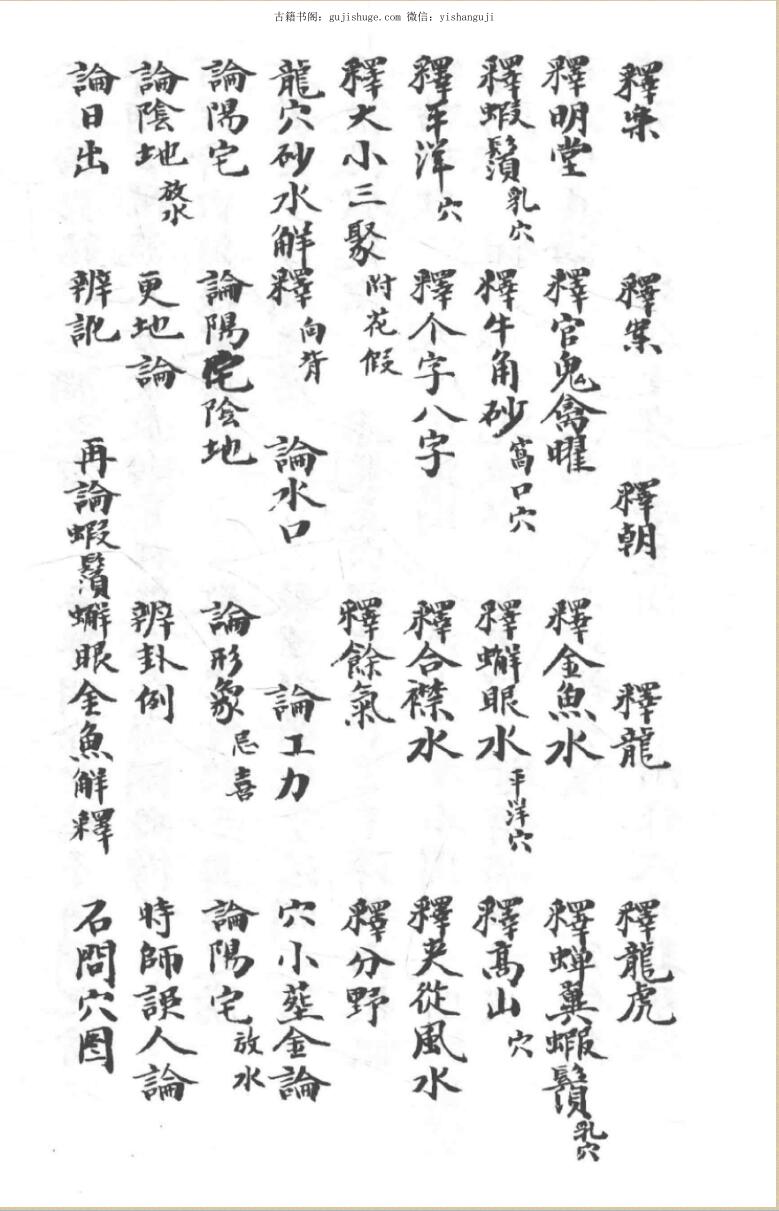 古籍书阁：gujishuge.com 微信：yishanguji
釋樂 釋案 釋朝 釋龍 釋龍虎
釋明堂 釋官鬼禽曜 釋金魚水 釋蟬翼蝦鬚乳穴
釋蝦鬚乳穴 釋牛角砂窩口穴 釋蠏眼水平洋穴 釋高山穴
釋平洋穴 釋个字八字 釋合襟水 釋夾從風水
釋大小三聚附花假 釋餘氣 釋分野
龍穴砂水解 釋向背 論水口 論工力 穴小塟金論
論陽宅 論陽宅陰地 論形象忌喜 論陽宅放水
論陰地放水 更地論 辨卦例 時師誤人論
論日出 辨訛 再論蝦鬚蠏眼金魚解釋 石問穴圖